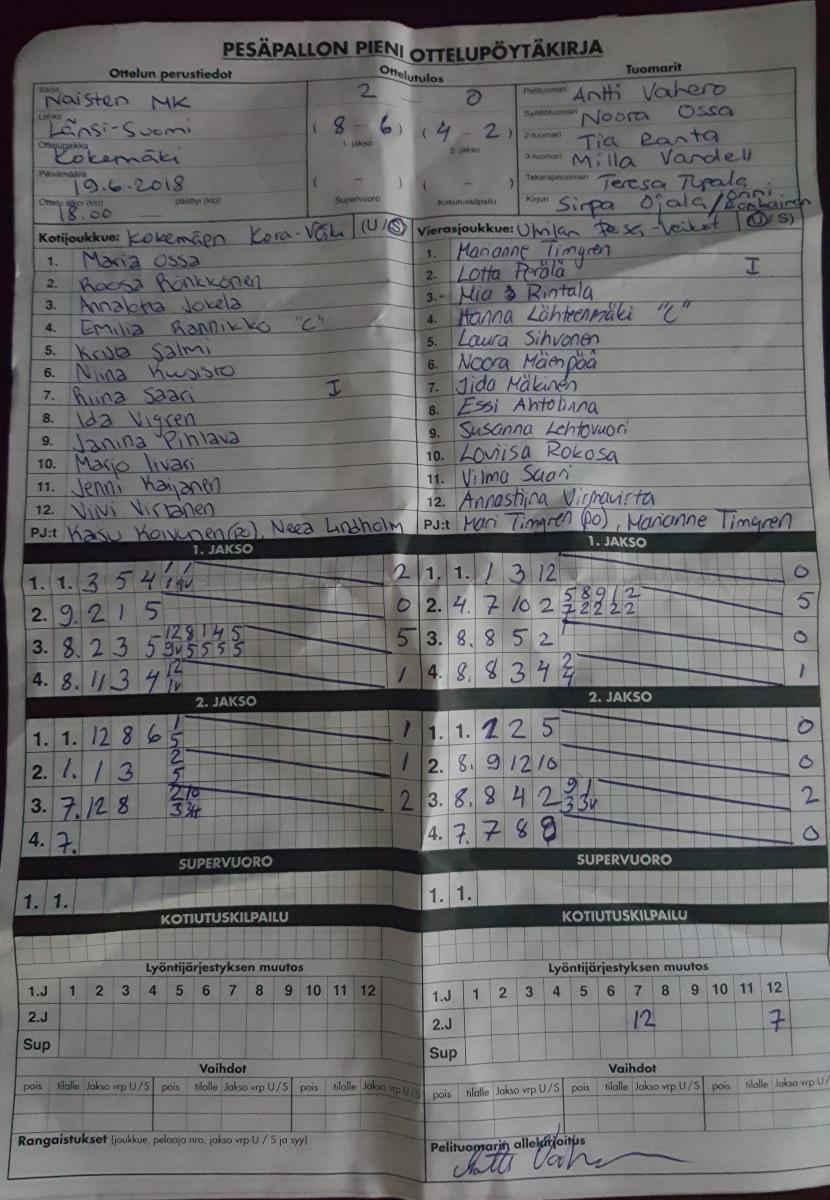 PESÄPALLON PIENI OTTELUPÖYTÄKIRJA
Ottelun perustiedot Ottelutulos Tuomarit
Sarja Naisten MK 2 - 0 Pelituomari Antti Vahero
Lohko Länsi-Suomi (8 - 6) (4 - 2) Syöttötuomari Noora Ossa
1. jakso 2. jakso 2-tuomari Tia Ranta
Ottelupaikka Kokemäki 3-tuomari Milla Vandell
Päivämäärä 19.6.2018 ( - ) ( - ) Takarajatuomari Teresa Tupala
Ottelu alkoi (klo) 18.00 päättyi (klo) Supervuoro Kotiutuskilpailu Kirjuri Sirpa Ojala/Onni
Kotijoukkue: Kokemäen Kova-Väki (U/S) Vierasjoukkue: Ulvilan Pesä-Veikot (U/S)
1. Maria Ossa 1. Marianne Timgren
2. Roosa Rönkkönen 2. Lotta Perälä I
3. Annalotta Jokela 3. Mia Rintala
4. Emilia Rannikko "C" 4. Hanna Lähteenmäki "C"
5. Salmi 5. Laura Sihvonen
6. Niina Kuusisto 6. Noora Mäenpää
7. Riina Saari I 7. Iida Mäkinen
8. Ida Vigren 8. Essi Ahtolinna
9. Janina Pihlava 9. Susanna Lehtovuori
10. Marjo Iivari 10. Loviisa Rokosa
11. Jenni Kaijanen 11. Vilma Saari
12. Viivi Virtanen 12. Annastiina Virmavirta
PJ:t Kaisu Koivunen (po), Neea Lindholm PJ:t Mari Timgren (po), Marianne Timgren
1. JAKSO 1. JAKSO
1. 1. 3 5 4 2 1. 1. 1 3 12 0
2. 9. 2 1 5 0 2. 4. 7 10 2 5 8 9 1 2 5
7 2 2 2 2
3. 8. 2 3 5 12 8 1 4 5 5 3. 8. 8 5 2 1 0
9v 5 5 5 5
4. 8. 11 3 4 12 1 4. 8. 8 3 4 2 1
1v 4
2. JAKSO 2. JAKSO
1. 1. 12 8 6 1 1 1. 1. 1 2 5 0
5
2. 1. 1 3 2 1 2. 8. 9 12 10 0
5
3. 7. 12 8 2 10 2 3. 8. 8 4 2 9 1 2
3 3v
4. 7. 4. 7. 7 8 0
SUPERVUORO SUPERVUORO
1. 1. 1. 1.
KOTIUTUSKILPAILU KOTIUTUSKILPAILU
Lyöntijärjestyksen muutos Lyöntijärjestyksen muutos
1.J 1 2 3 4 5 6 7 8 9 10 11 12 1.J 1 2 3 4 5 6 7 8 9 10 11 12
2.J 2.J 12 7
Sup Sup
Vaihdot Vaihdot
pois tilalle Jakso vrp U/S pois tilalle Jakso vrp U/S pois tilalle Jakso vrp U/S pois tilalle Jakso vrp U/S pois tilalle Jakso vrp U/S pois tilalle Jakso vrp U/S
Rangaistukset (joukkue, pelaaja nro, jakso vrp U / S ja syy) Pelituomarin allekirjoitus